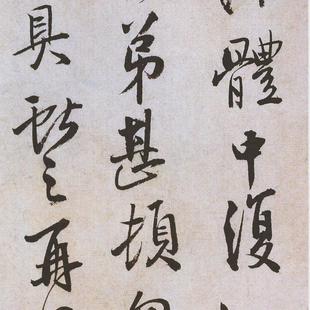 體中復
弟甚頓
具獻之再